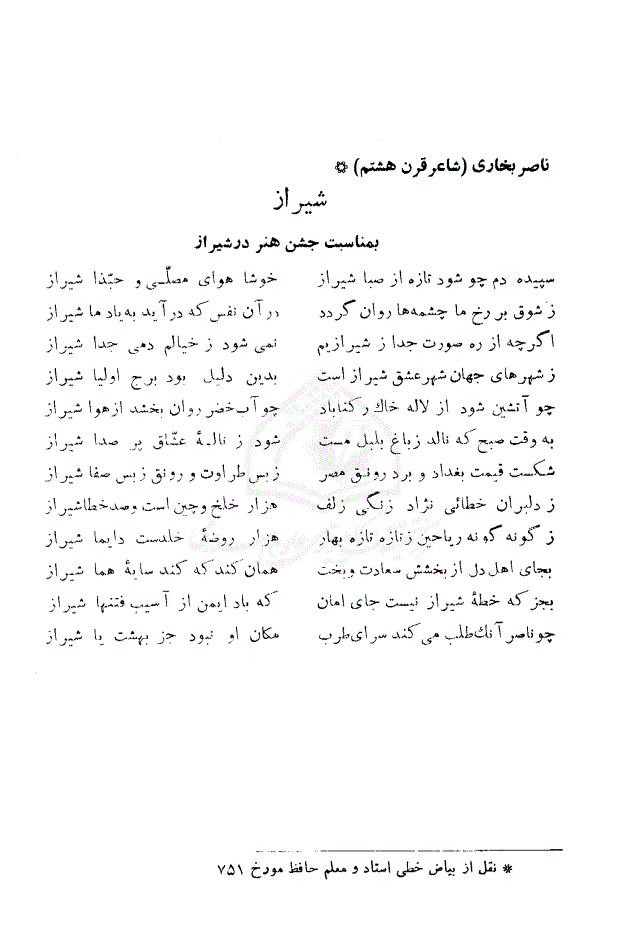 ناصر بخاری (شاعر قرن هشتم) *
شیراز
بمناسبت جشن هنر در شیراز
سپیده دم چو شود تازه از صبا شیراز خوشا هوای مصلّی و حبّذا شیراز
ز شوق بر رخ ما چشمه‌ها روان گردد در آن نفس که در آید به یاد ما شیراز
اگرچه از ره صورت جدا ز شیرازیم نمی شود ز خیالم دمی جدا شیراز
ز شهرهای جهان شهر عشق شیراز است بدین دلیل بود برج اولیا شیراز
چو آتشین شود از لاله خاك رکناباد چو آب خضر روان بخشد از هوا شیراز
به وقت صبح که نالد ز باغ بلبل مست شود ز نالهٔ عشّاق پر صدا شیراز
شکست قیمت بغداد و برد رونق مصر ز بس طراوت و رونق ز بس صفا شیراز
ز دلبران خطائی نژاد زنگی زلف هزار خلخ و چین است و صد خطا شیراز
ز گونه گونه ریاحین ز تازه تازه بهار هزار روضهٔ خلدست دایما شیراز
بجای اهل دل از بخشش سعادت و بخت همان کند که کند سایهٔ هما شیراز
بجز که خطهٔ شیراز نیست جای امان که باد ایمن از آسیب فتنها شیراز
چو ناصر آنك طلب می کند سرای طرب مکان او نبود جز بهشت یا شیراز
* نقل از بیاض خطی استاد و معلم حافظ مورخ ۷۵۱